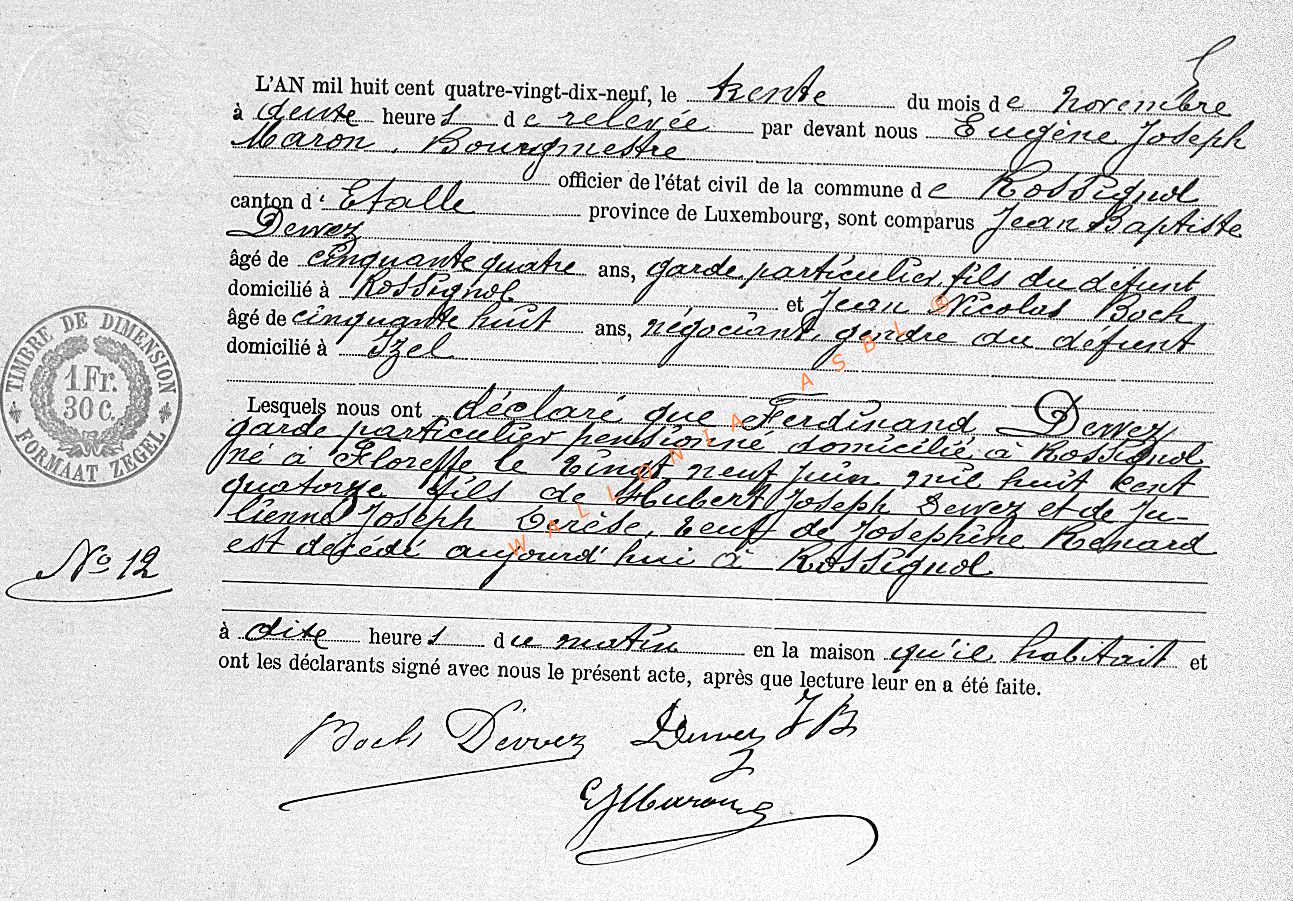 L'AN mil huit cent quatre-vingt-dix-neuf, le trente du mois de novembre
à deux heures de relevée par devant nous Eugène Joseph
Maron, Bourgmestre
officier de l'état civil de la commune de Rossignol
canton d'Etalle province de Luxembourg, sont comparus Jean Baptiste
Dewez
âgé de cinquante quatre ans, garde particulier, fils du défunt
domicilié à Rossignol et Jean Nicolas Boch
âgé de cinquante huit ans, négociant, gendre du défunt
domicilié à Izel
Lesquels nous ont déclaré que Ferdinand Dewez
garde particulier pensionné domicilié à Rossignol
né à Floreffe le vingt neuf juin mil huit cent
quatorze fils de Hubert Joseph Dewez et de Ju-
lienne Joseph Terèse, veuf de Josephine Renard
est décédé aujourd'hui à Rossignol
à dix heures du matin en la maison qu'il habitait et
ont les déclarants signé avec nous le présent acte, après que lecture leur en a été faite.
Boch Dewez Dewez JB
EJMaron
N° 12
TIMBRE DE DIMENSION
1 Fr.
30 C.
FORMAAT ZEGEL
WALLONIA ASBL ©